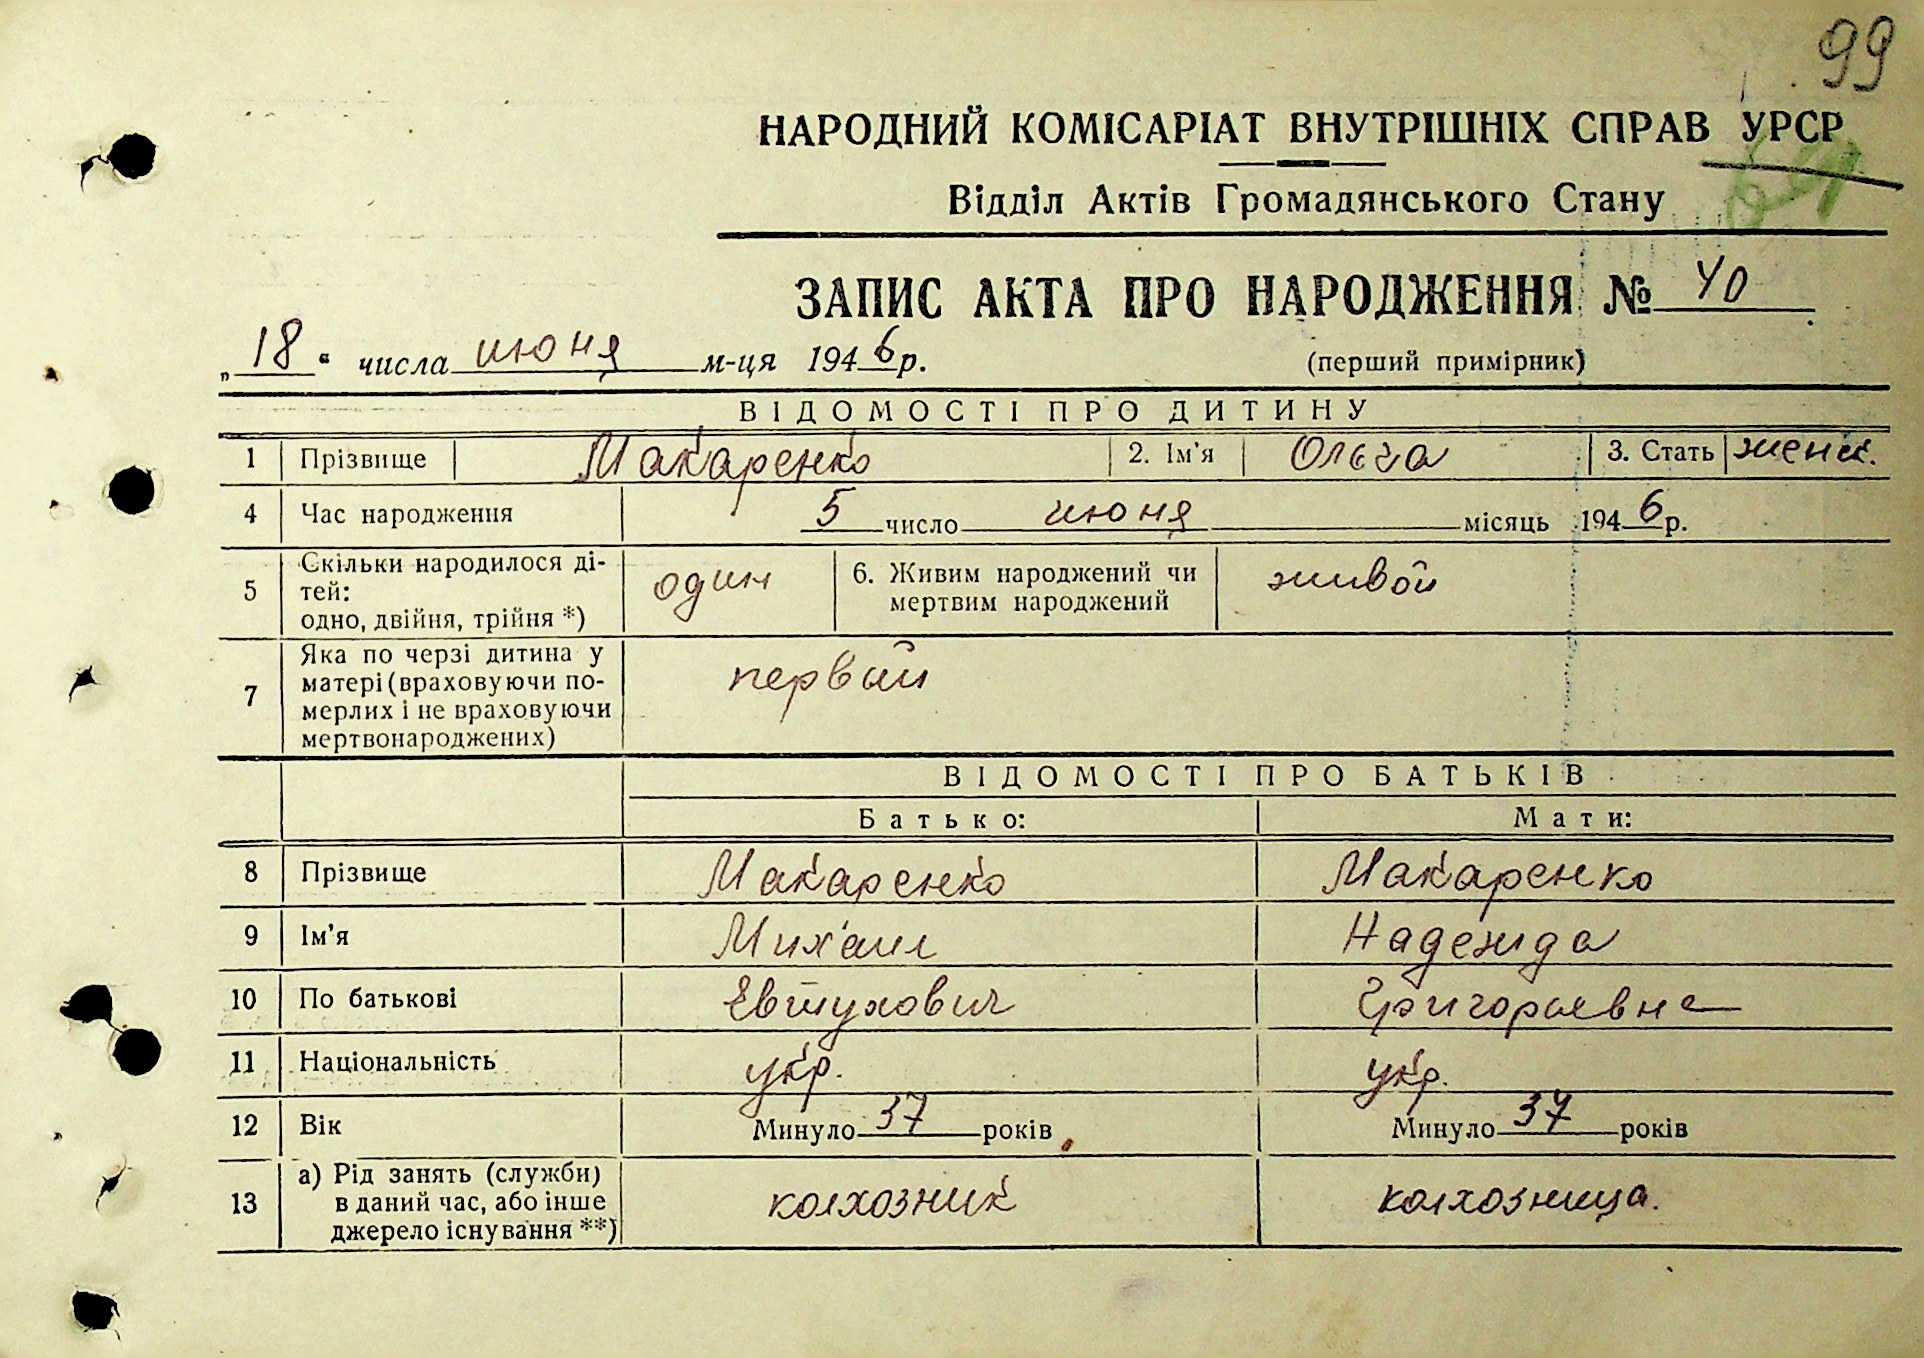 99
НАРОДНИЙ КОМІСАРІАТ ВНУТРІШНІХ СПРАВ УРСР
Відділ Актів Громадянського Стану
ЗАПИС АКТА ПРО НАРОДЖЕННЯ № 40
„18“ числа июня м-ця 1946 р.
(перший примірник)
ВІДОМОСТІ ПРО ДИТИНУ
1 Прізвище Макаренко 2. Ім'я Ольга 3. Стать женск.
4 Час народження 5 число июня місяць 1946 р.
5 Скільки народилося ді-
тей:
одно, двійня, трійня *) один 6. Живим народжений чи
мертвим народжений живой
7 Яка по черзі дитина у
матері (враховуючи по-
мерлих і не враховуючи
мертвонароджених) первый
ВІДОМОСТІ ПРО БАТЬКІВ
Батько: Мати:
8 Прізвище Макаренко Макаренко
9 Ім'я Михаил Надежда
10 По батькові Евтухович Григорьевна
11 Національність укр. укр.
12 Вік Минуло 37 років Минуло 37 років
13 а) Рід занять (служби)
в даний час, або інше
джерело існування **) колхозник колхозница.